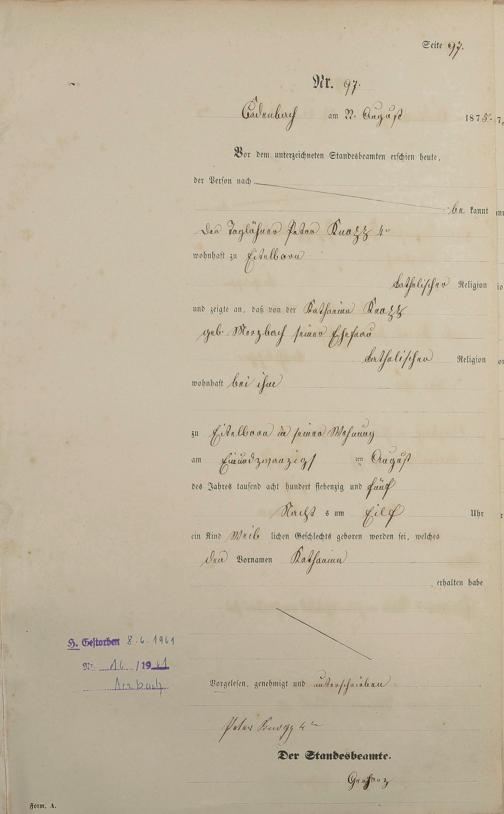 Seite 97.
Nr. 97.
Cadenbach am 22. August 1875.
Vor dem unterzeichneten Standesbeamten erschien heute,
der Person nach
be kannt
der Taglöhner Peter Knopp 4r
wohnhaft zu Eitelborn
katholischer Religion
und zeigte an, daß von der Katharina Knopp
geb Merzbach seiner Ehefrau
katholischer Religion
wohnhaft bei ihm
zu Eitelborn in seiner Wohnung
am Einundzwanzigst en August
des Jahres tausend acht hundert siebenzig und fünf
Nacht s um Eilf Uhr
ein Kind weib lichen Geschlechts geboren worden sei, welches
den Vornamen Katharina
erhalten habe
H. Gestorben 8.6.1961
Nr. 16 /1961
Arzbach
Vorgelesen, genehmigt und unterschrieben
Peter Knopp 4r
Der Standesbeamte.
Form. A.